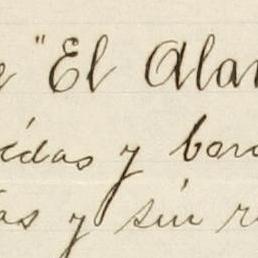 e "El Alar
édas y bord
as y sin r